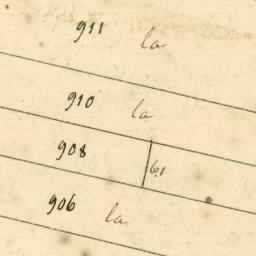 911 la
910 la
908
906 la